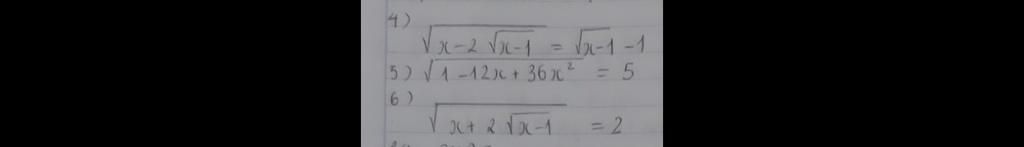 4)
√(x-2√(x-1)) = √(x-1) -1
5) √(1-12x+36x²) = 5
6)
√(x+2√(x-1)) = 2